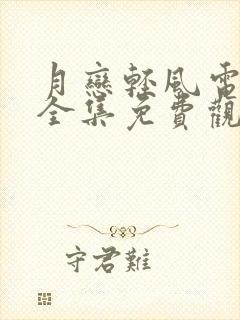 月戀輕風電
全集免費觀
守君難